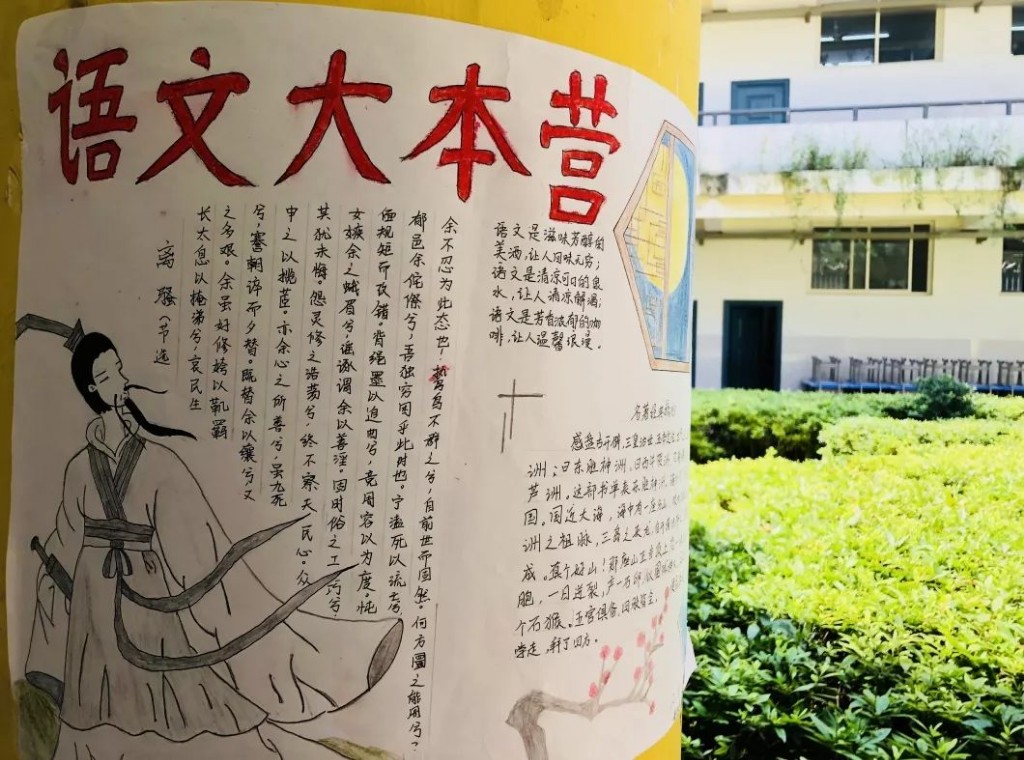 语文大本营
离骚（节选
长太息以掩涕兮，哀民生
之多艰。余虽好修姱以靰羁
兮，謇朝谇而夕替。既替余以纕兮又
申之以揽茞。亦余心之所善兮，虽九死
其犹未悔。怨灵修之浩荡兮，终不察夫民心。众
女嫉余之蛾眉兮，谣诼谓余以善淫。固时俗之工巧兮
偭规矩而改错。背绳墨以追曲兮，竞周容以为度。忳
郁邑余侘傺兮，吾独穷困乎此时也。宁溘死以流亡兮
余不忍为此态也！鸷鸟不群之兮，自前世而固然。何方圜之能周兮？
语文是滋味芳醇的
美酒，让人回味无穷；
语文是清凉可口的泉
水，让人清凉解渴；
语文是芳香浓郁的咖
啡，让人温馨浪漫。
名著经典
感盘古开辟，三皇治世，五帝
洲；曰东胜神洲，曰西牛贺洲
芦洲。这部书单表东胜神洲。
国。国近大海，海中有一座名山
洲之祖脉，三岛之来龙，
成。真个好山！那座山正当顶上
胞，一日迸裂，产一石卵，似圆
个石猴。五官俱备，四肢皆全，
学走，拜了四方。